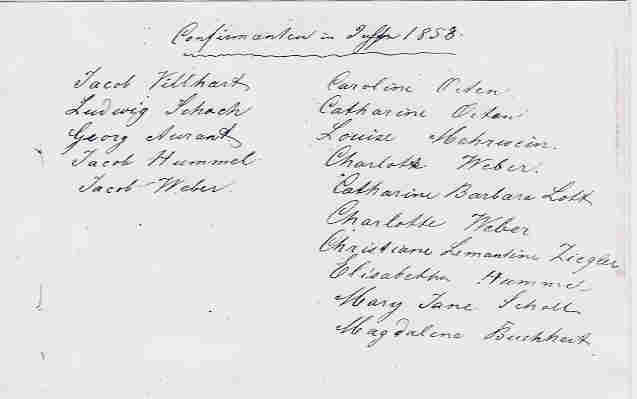 Confirmanten in Jahr 1858.
Jacob Villhart
Ludwig Schoch
Georg Aurant
Jacob Hummel
Jacob Weber.
Caroline Orten
Catharine Orten
Louise Mehrwein.
Charlotte Weber.
Catharine Barbara Lott
Charlotte Weber
Christiane Lemantine Ziegler
Elisabetha Hummel
Mary Jane Scholl
Magdalena Buckhert.